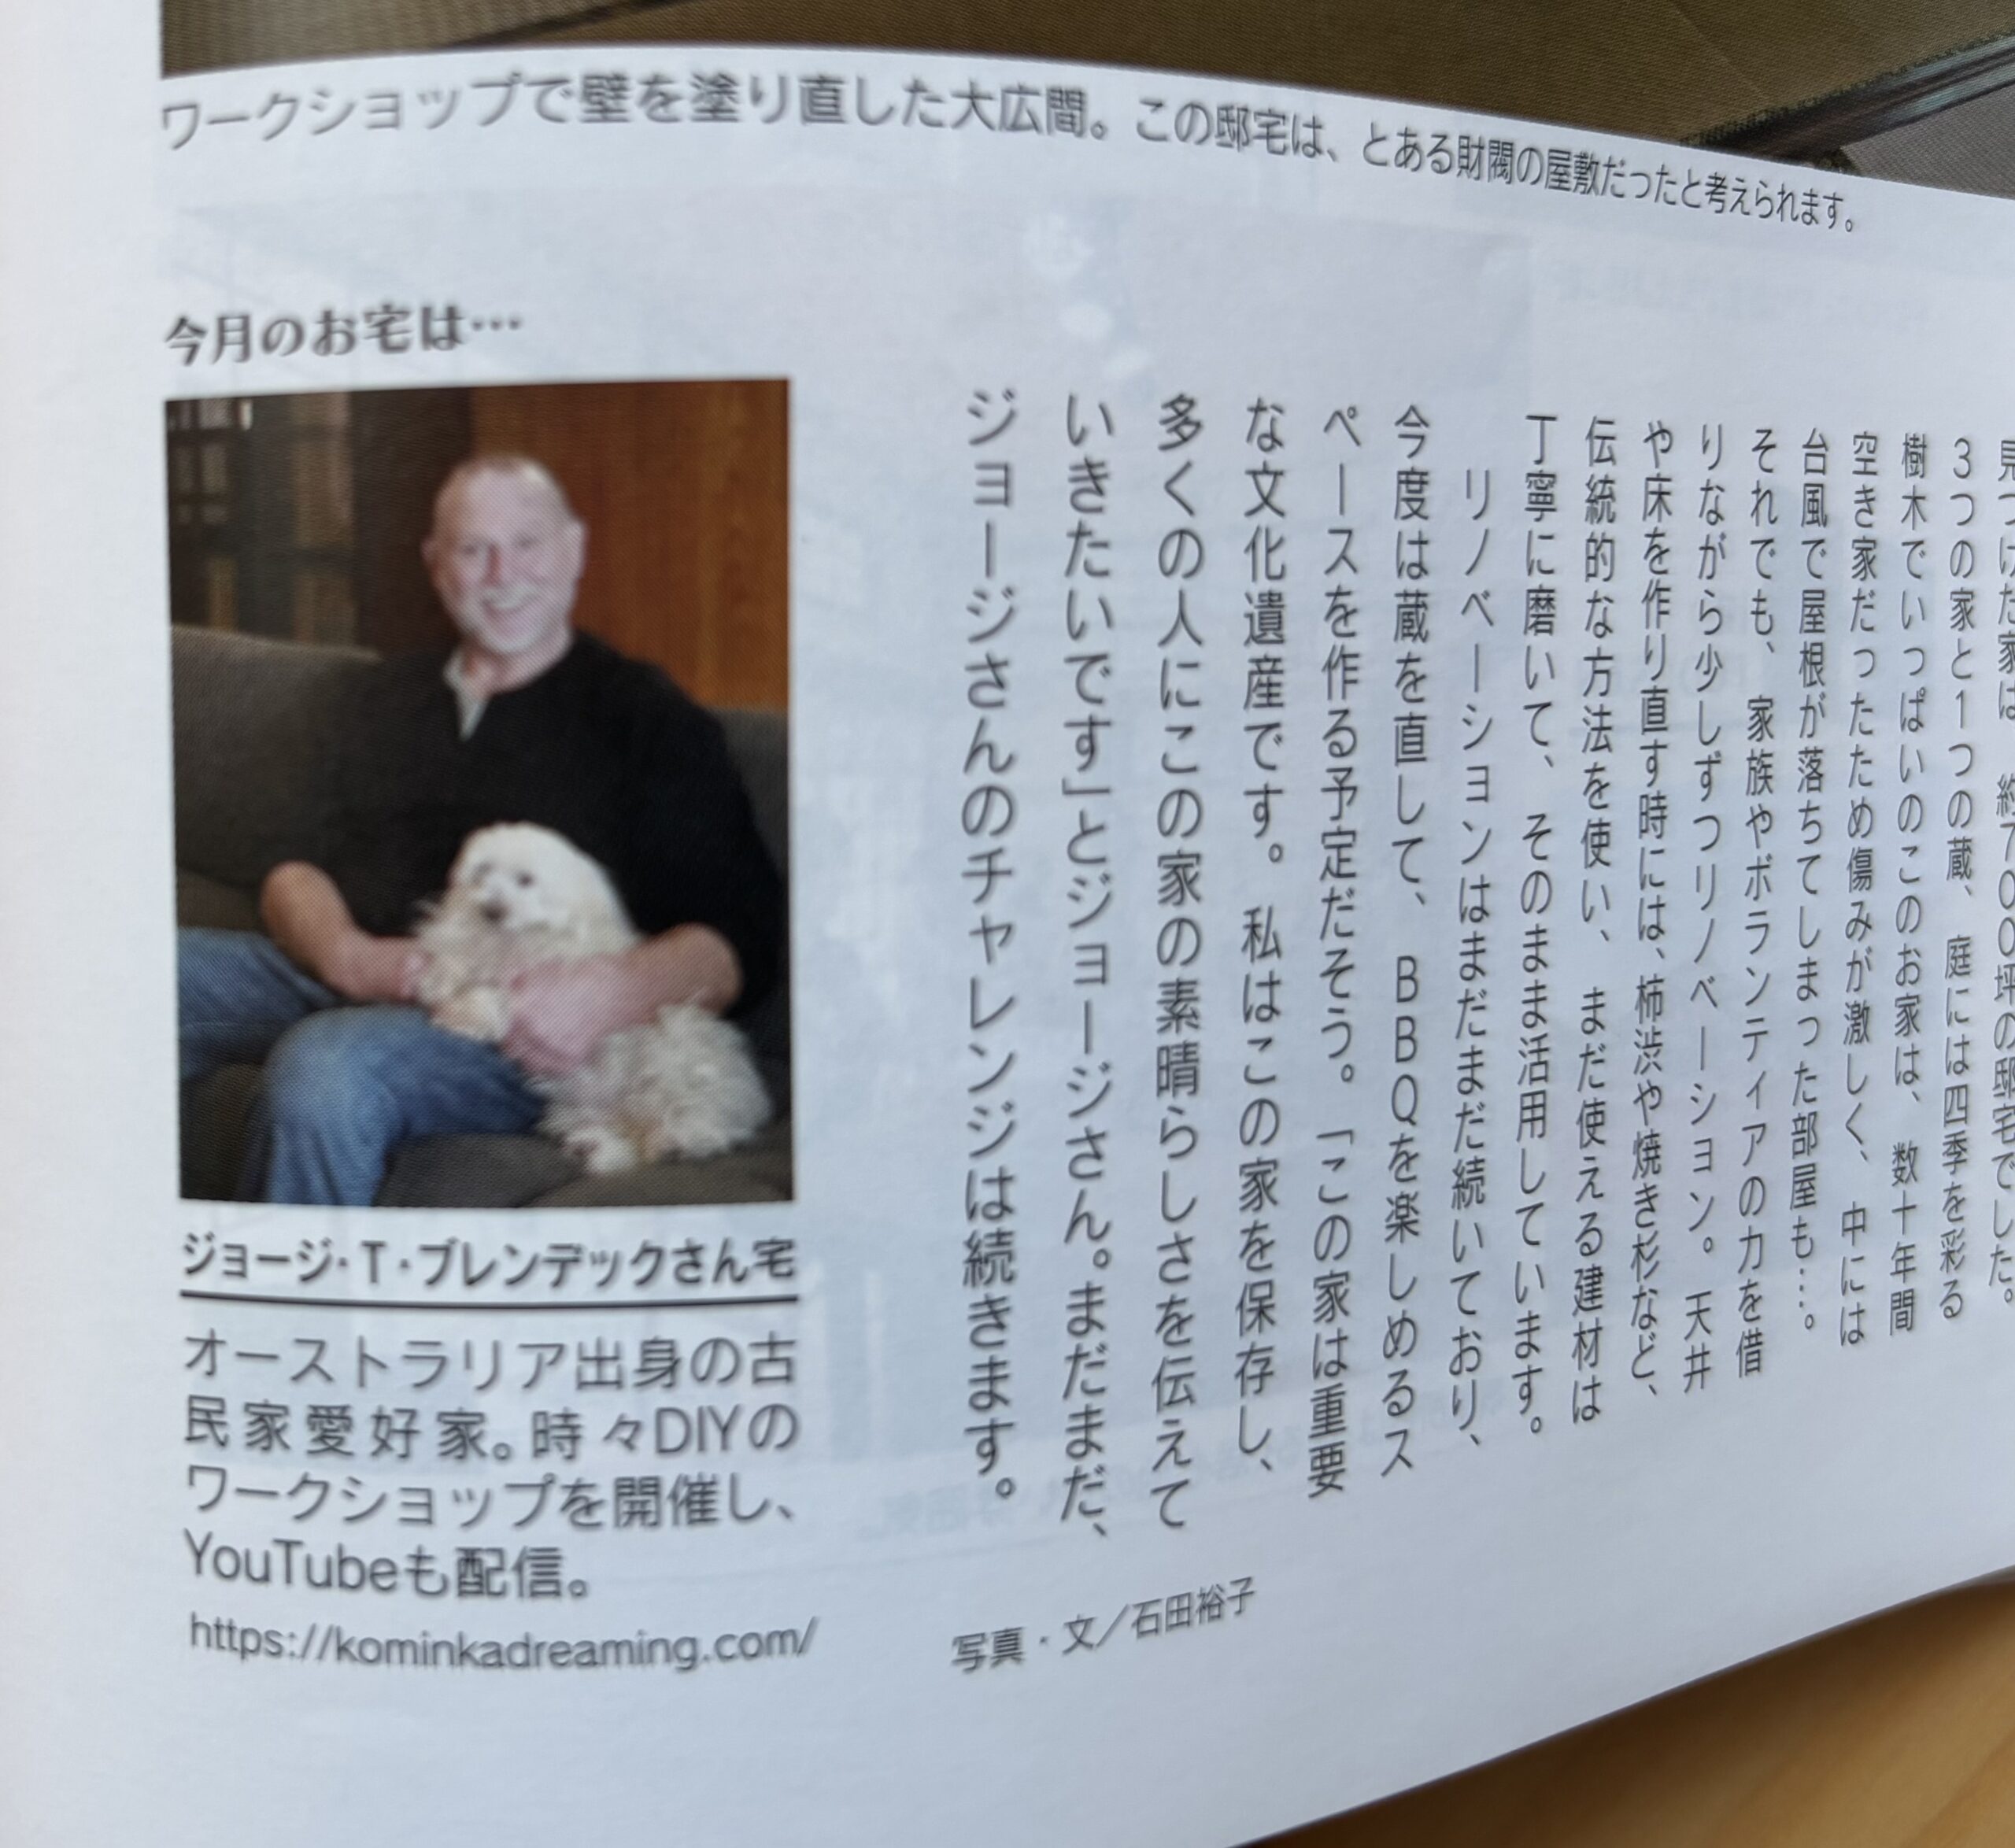 ワークショップで壁を塗り直した大広間。この邸宅は、とある財閥の屋敷だったと考えられます。
見つけた家は、約700坪の邸宅でした。
3つの家と1つの蔵、庭には四季を彩る
樹木でいっぱいのこのお家は、数十年間
空き家だったため傷みが激しく、中には
台風で屋根が落ちてしまった部屋も…。
それでも、家族やボランティアの力を借
りながら少しずつリノベーション。天井
や床を作り直す時には、柿渋や焼き杉など、
伝統的な方法を使い、まだ使える建材は
丁寧に磨いて、そのまま活用しています。
リノベーションはまだまだ続いており、
今度は蔵を直して、BBQを楽しめるス
ペースを作る予定だそう。「この家は重要
な文化遺産です。私はこの家を保存し、
多くの人にこの家の素晴らしさを伝えて
いきたいです」とジョージさん。まだまだ、
ジョージさんのチャレンジは続きます。
写真・文／石田裕子
今月のお宅は…
ジョージ・T・ブレンデックさん宅
オーストラリア出身の古
民家愛好家。時々DIYの
ワークショップを開催し、
YouTubeも配信。
https://kominkadreaming.com/